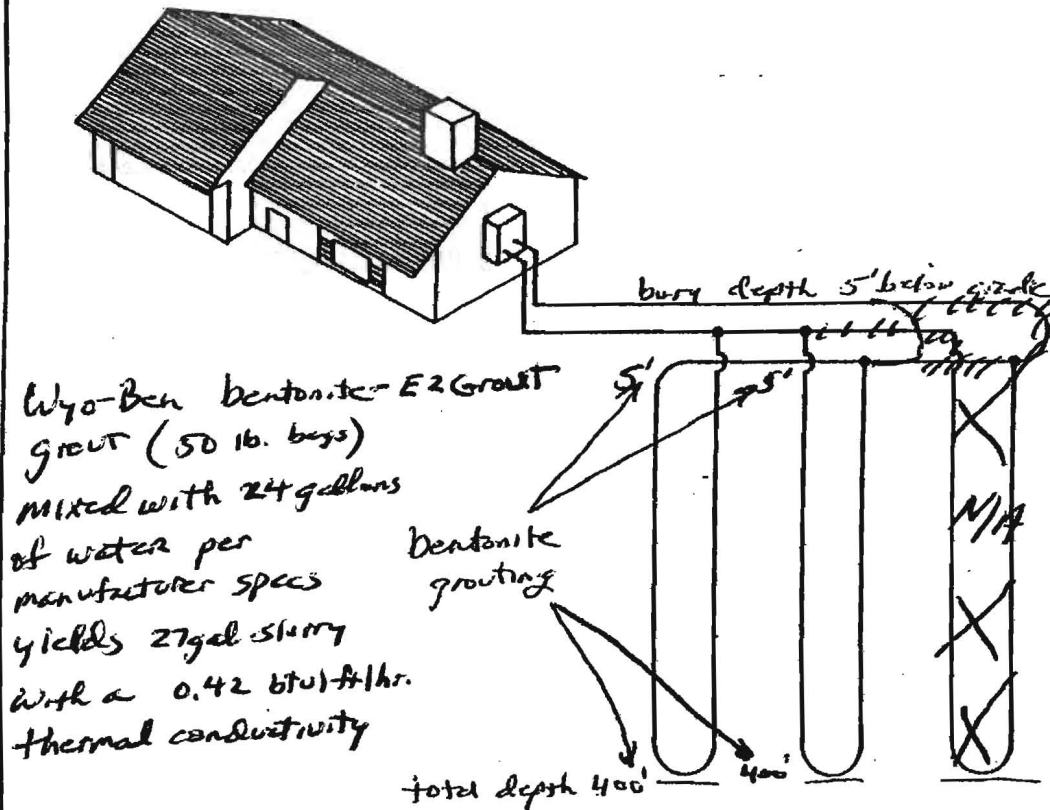 bury depth 5' below grade
Wyo-Ben bentonite - EZ Grout
grout (50 lb. bags)
mixed with 24 gallons
of water per
manufacturer specs
yields 27gal slurry
with a 0.42 btu/-ft/hr.
thermal conductivity
5'
5'
bentonite
grouting
N/A
total depth 400'
400'